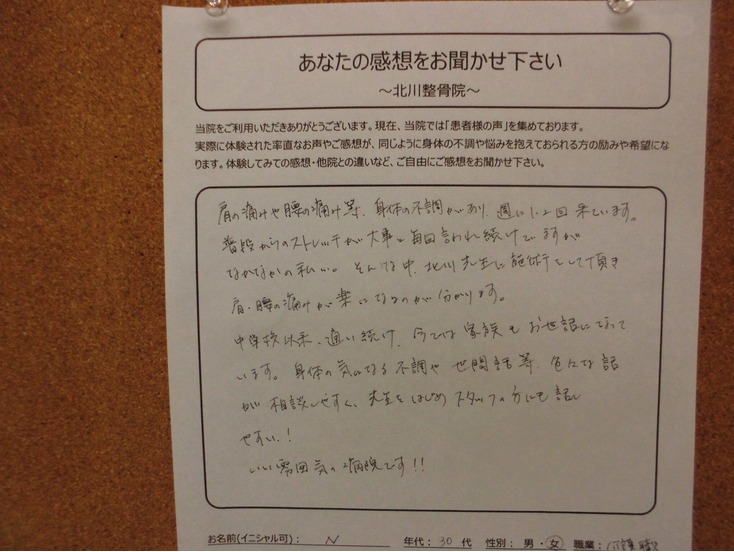 あなたの感想をお聞かせ下さい
～北川整骨院～
当院をご利用いただきありがとうございます。現在、当院では「患者様の声」を集めております。
実際に体験された率直なお声やご感想が、同じように身体の不調や悩みを抱えておられる方の励みや希望にな
ります。体験してみての感想・他院との違いなど、ご自由にご感想をお聞かせ下さい。
肩の痛みや腰の痛み等、身体の不調があり、週に1、2回来ています。
普段からのストレッチが大事と毎回言われ続けていますが
なかなかの私…。そんな中、北川先生に施術をして頂き
肩・腰の痛みが楽になるのが分かります。
中学校以来、通い続け、今では家族もお世話になって
います。身体の気になる不調や世間話等、色々な話
が相談しやすく、先生をはじめスタッフの方にも話し
やすい！
いい雰囲気の病院です!!
お名前(イニシャル可)： N 年代：30代 性別：男・女 職業：介護職